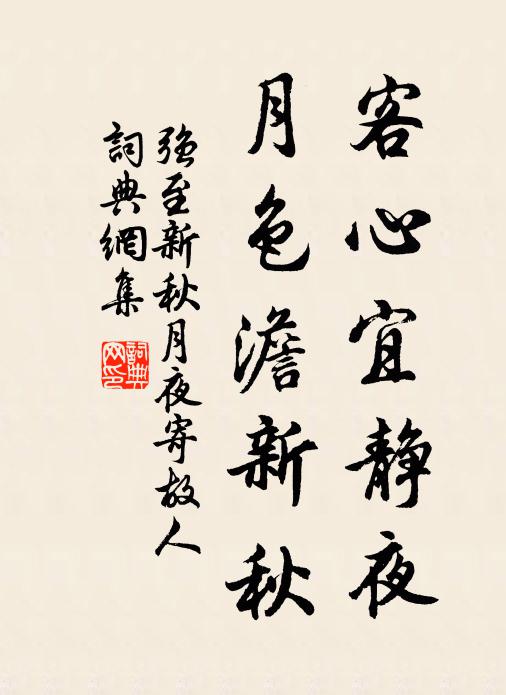 客心宜静夜
月色澹新秋
强至新秋月夜寄故人
詞典網集
詞典
网印